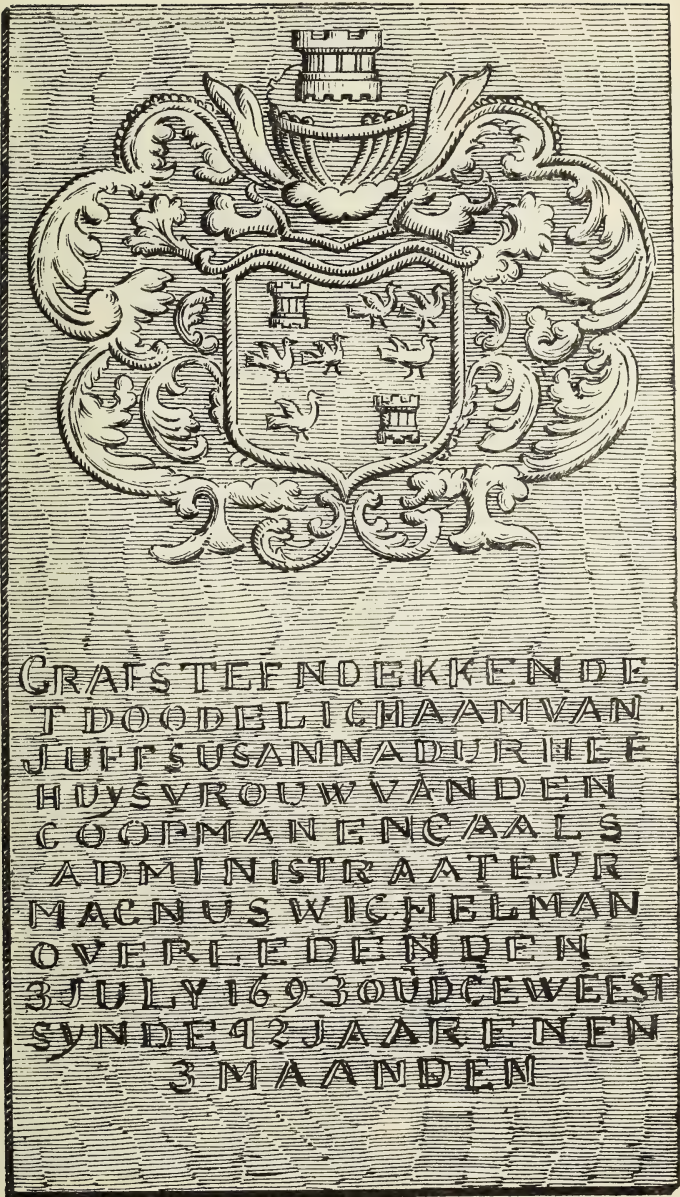 GRAFSTEENDEKKENDE
T DOODELICHAAMVAN
JUFFSUSANNADURHEE
HUYSVROUWVANDEN
COOPMANENCAALS
ADMINISTRAATEUR
MAGNUSWICHELMAN
OVERLEDENDEN
3JULY1693OUDGEWEEST
SYNDE42JAARENEN
3MAANDEN